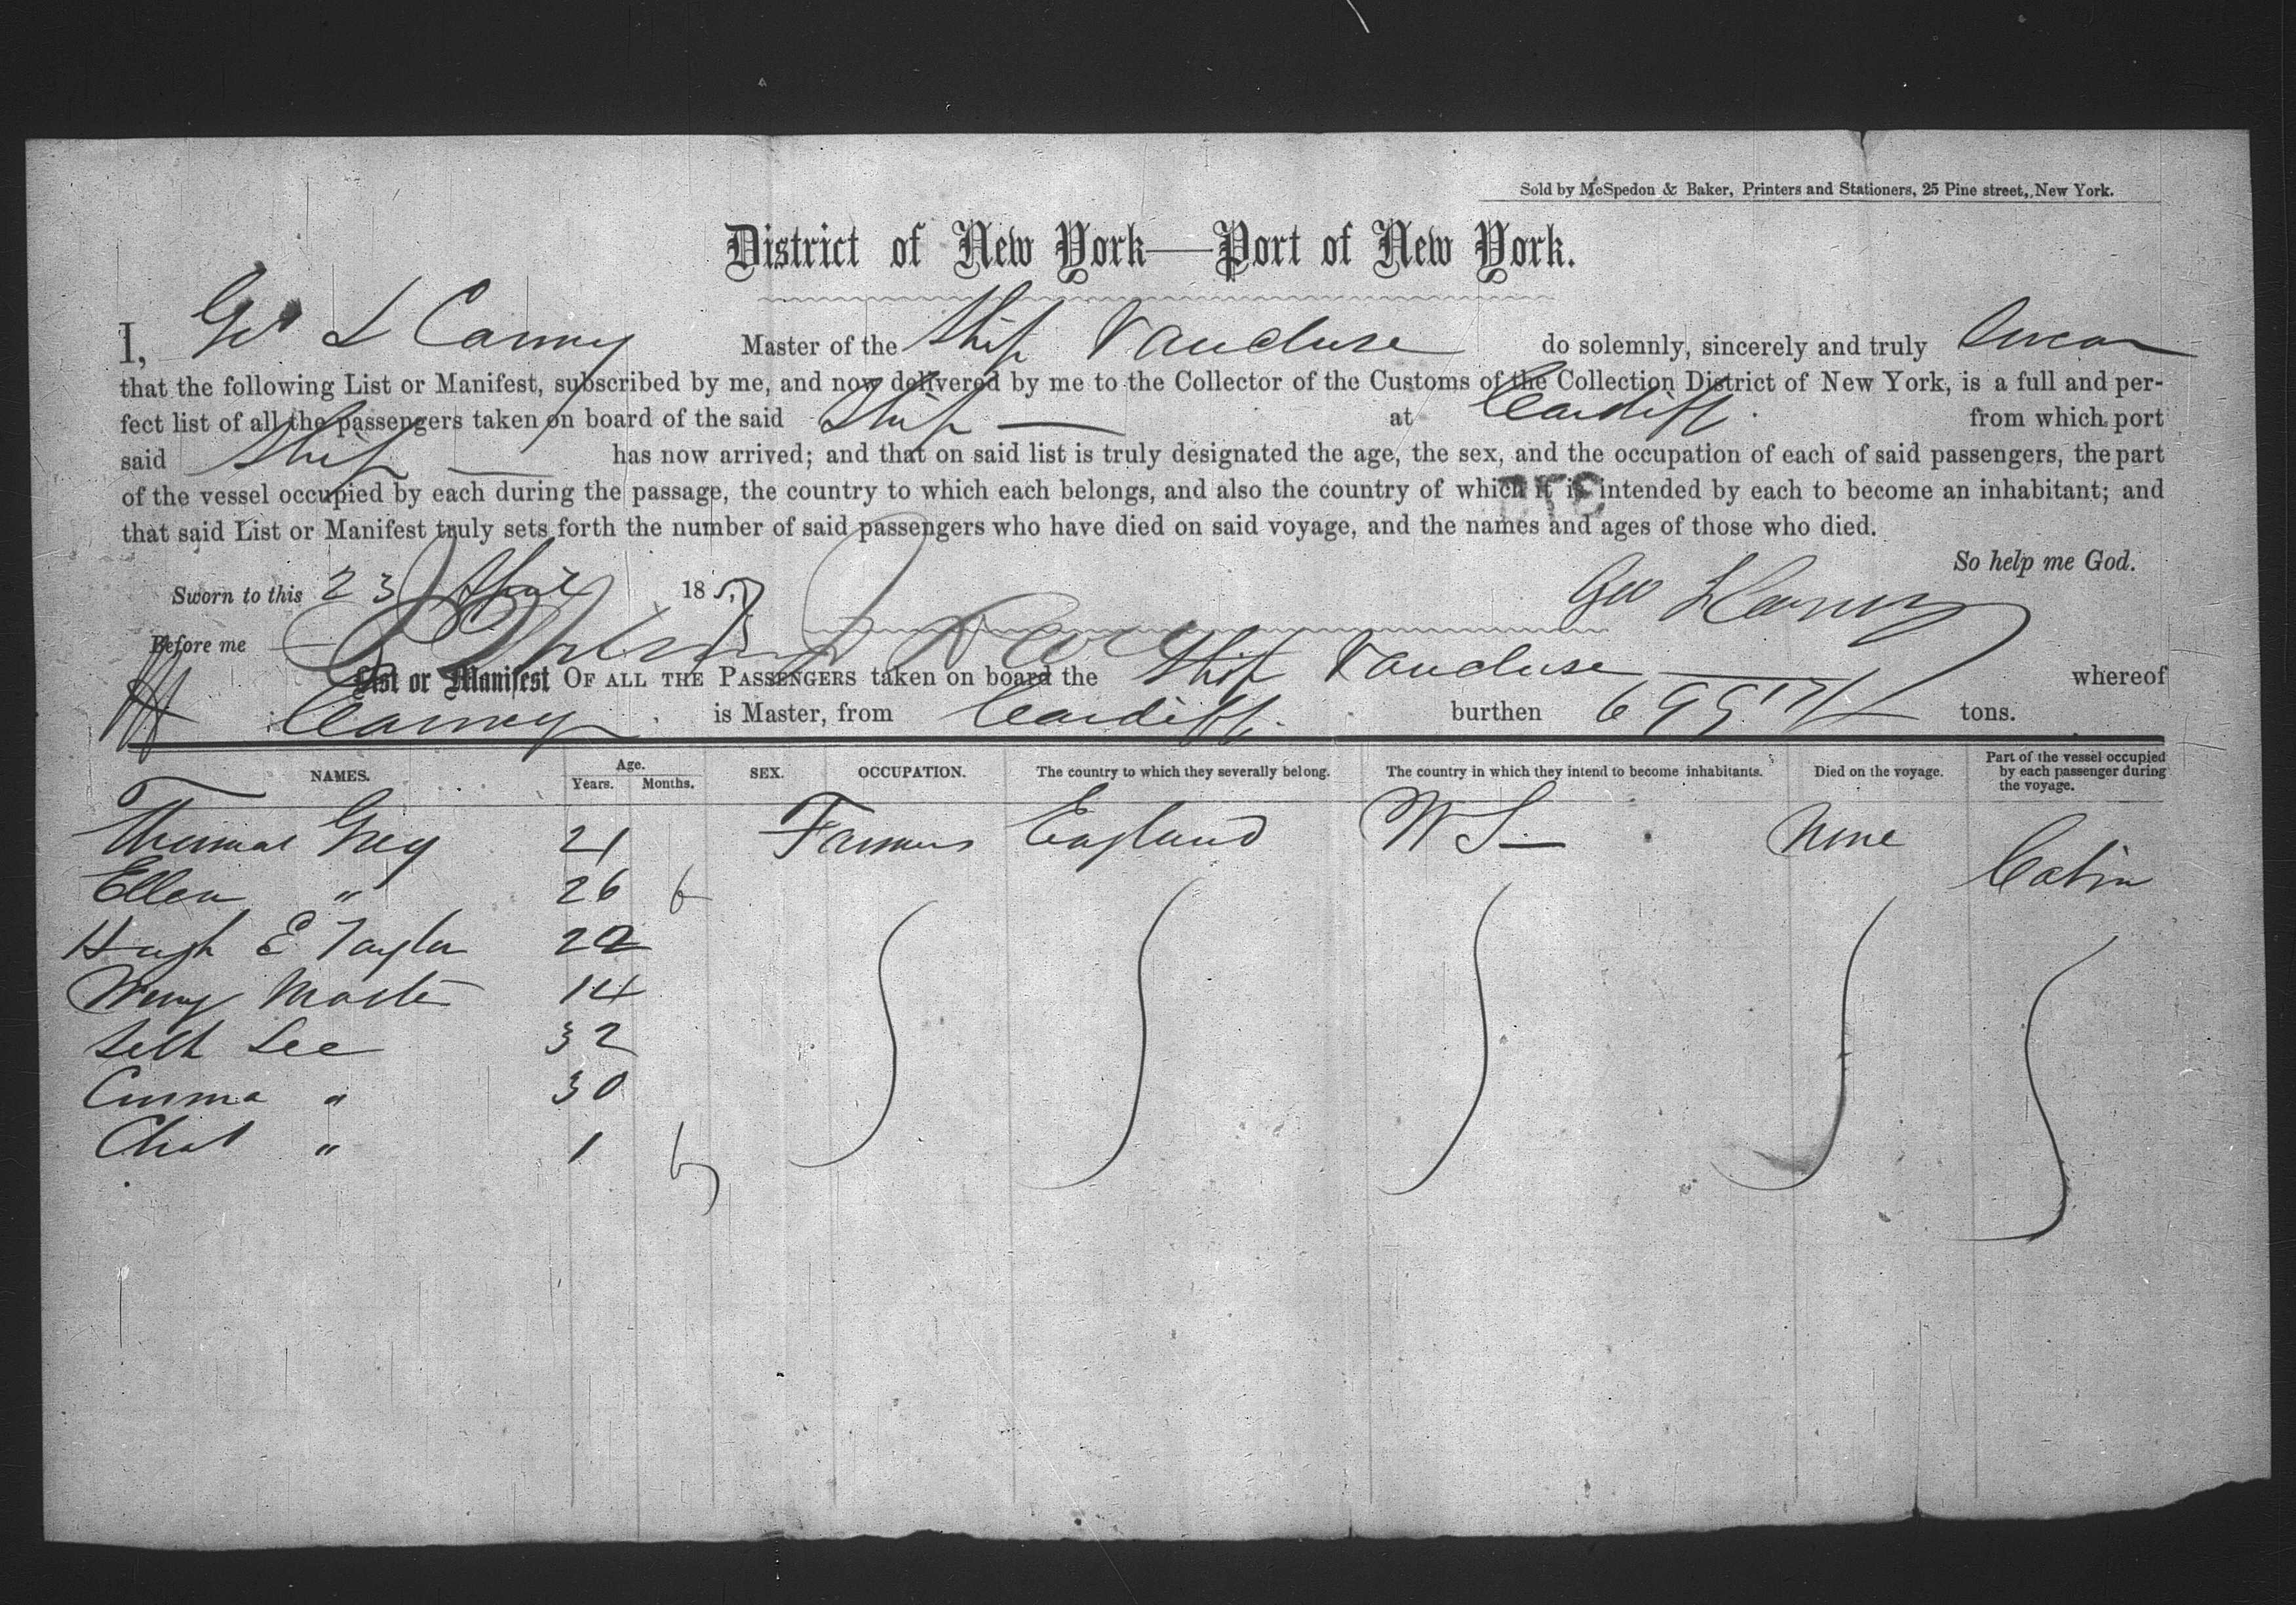 Sold by McSpedon & Baker, Printers and Stationers, 25 Pine street, New York.
District of New York—Port of New York.
I, Geo L Canney Master of the Ship Vaucluse do solemnly, sincerely and truly Swear
that the following List or Manifest, subscribed by me, and now delivered by me to the Collector of the Customs of the Collection District of New York, is a full and per-
fect list of all the passengers taken on board of the said Ship — at Cardiff from which port
said Ship — has now arrived; and that on said list is truly designated the age, the sex, and the occupation of each of said passengers, the part
of the vessel occupied by each during the passage, the country to which each belongs, and also the country of which it is intended by each to become an inhabitant; and
that said List or Manifest truly sets forth the number of said passengers who have died on said voyage, and the names and ages of those who died.
So help me God.
Sworn to this 23 April 185 Geo L Canney
Before me
List or Manifest OF ALL THE PASSENGERS taken on board the Ship Vaucluse — whereof
Canney is Master, from Cardiff. burthen 699 tons.
NAMES. Age. Years. Months. SEX. OCCUPATION. The country to which they severally belong. The country in which they intend to become inhabitants. Died on the voyage. Part of the vessel occupied by each passenger during the voyage.
Thomas Grey 21 Farmers England None
Ellen " 26 6 Cabin
Hugh E Taylor 22
14
Seth Lee 32
Emma " 30
Chas " 1 6